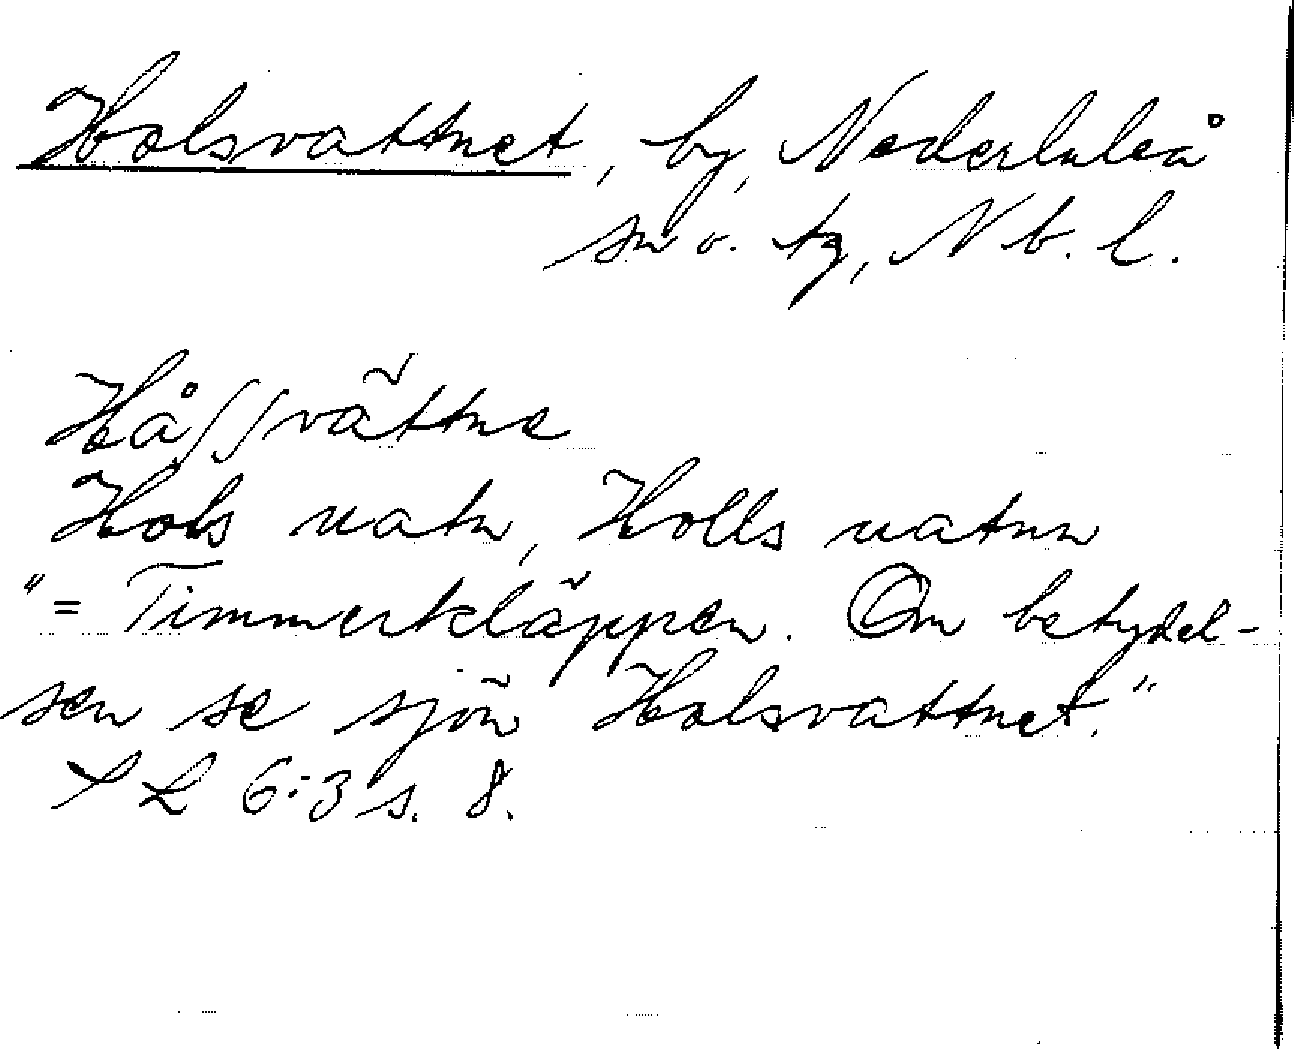 Holsvattnet, by, Nederluleå
sn o. tg, Nb. l.
Håſſvättne
Hols uatn, Holls uatnn
"= Timmerkläppen. Om betydel-
sen se sjön Holsvattnet."
SL 6:3 s. 8.